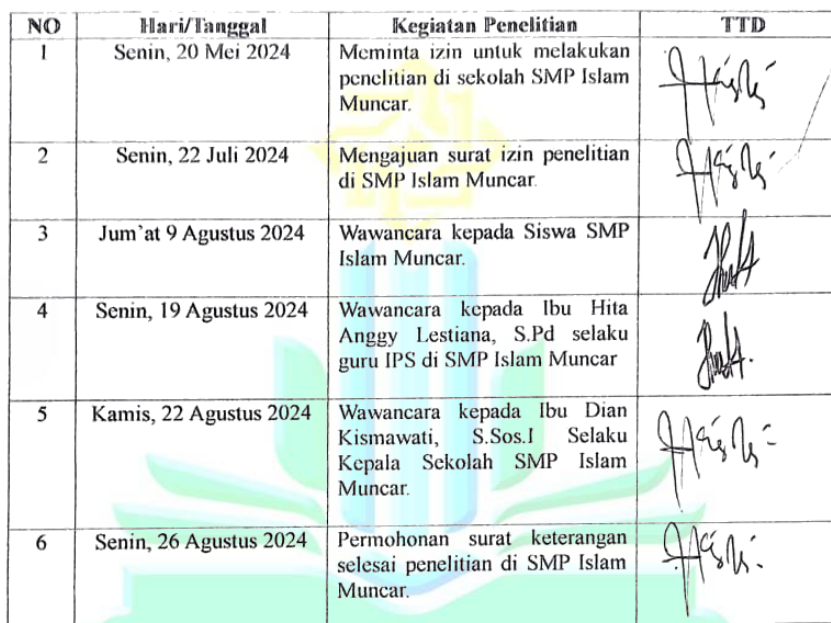 NO Hari/Tanggal Kegiatan Penelitian TTD
1 Senin, 20 Mei 2024 Meminta izin untuk melakukan
penelitian di sekolah SMP Islam
Muncar.
2 Senin, 22 Juli 2024 Mengajuan surat izin penelitian
di SMP Islam Muncar.
3 Jum'at 9 Agustus 2024 Wawancara kepada Siswa SMP
Islam Muncar.
4 Senin, 19 Agustus 2024 Wawancara kepada Ibu Hita
Anggy Lestiana, S.Pd selaku
guru IPS di SMP Islam Muncar
5 Kamis, 22 Agustus 2024 Wawancara kepada Ibu Dian
Kismawati, S.Sos.I Selaku
Kepala Sekolah SMP Islam
Muncar.
6 Senin, 26 Agustus 2024 Permohonan surat keterangan
selesai penelitian di SMP Islam
Muncar.